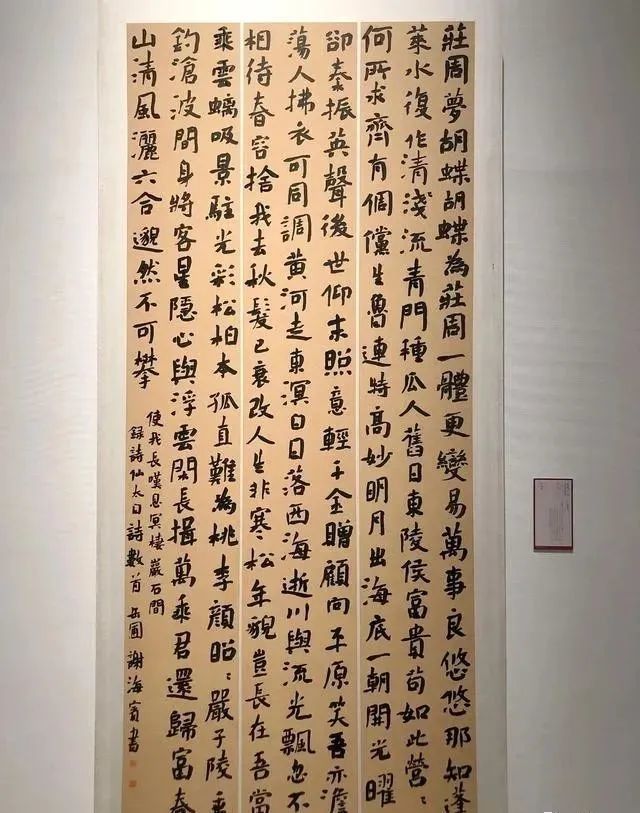 莊周夢胡蝶胡蝶為莊周一體更變易萬事良悠悠那知蓬
萊水復作清淺流青門種瓜人舊日東陵侯富貴苟如此營〻
何所求齊有倜儻生魯連特高妙明月出海底一朝開光曜
卻秦振英聲後世仰末照意輕千金贈顧向平原笑吾亦澹
蕩人拂衣可同調黃河走東溟白日落西海逝川與流光飄忽不
相待春容捨我去秋髮已衰改人生非寒松年貌豈長在吾當
乘雲螭吸景駐光彩松柏本孤直難為桃李顏昭〻嚴子陵垂
釣滄波間身將客星隱心與浮雲閑長揖萬乘君還歸富春
山清風灑六合邈然不可攀
使我長嘆息冥棲巖石間
錄詩仙太白詩數首岳圃謝海賓書